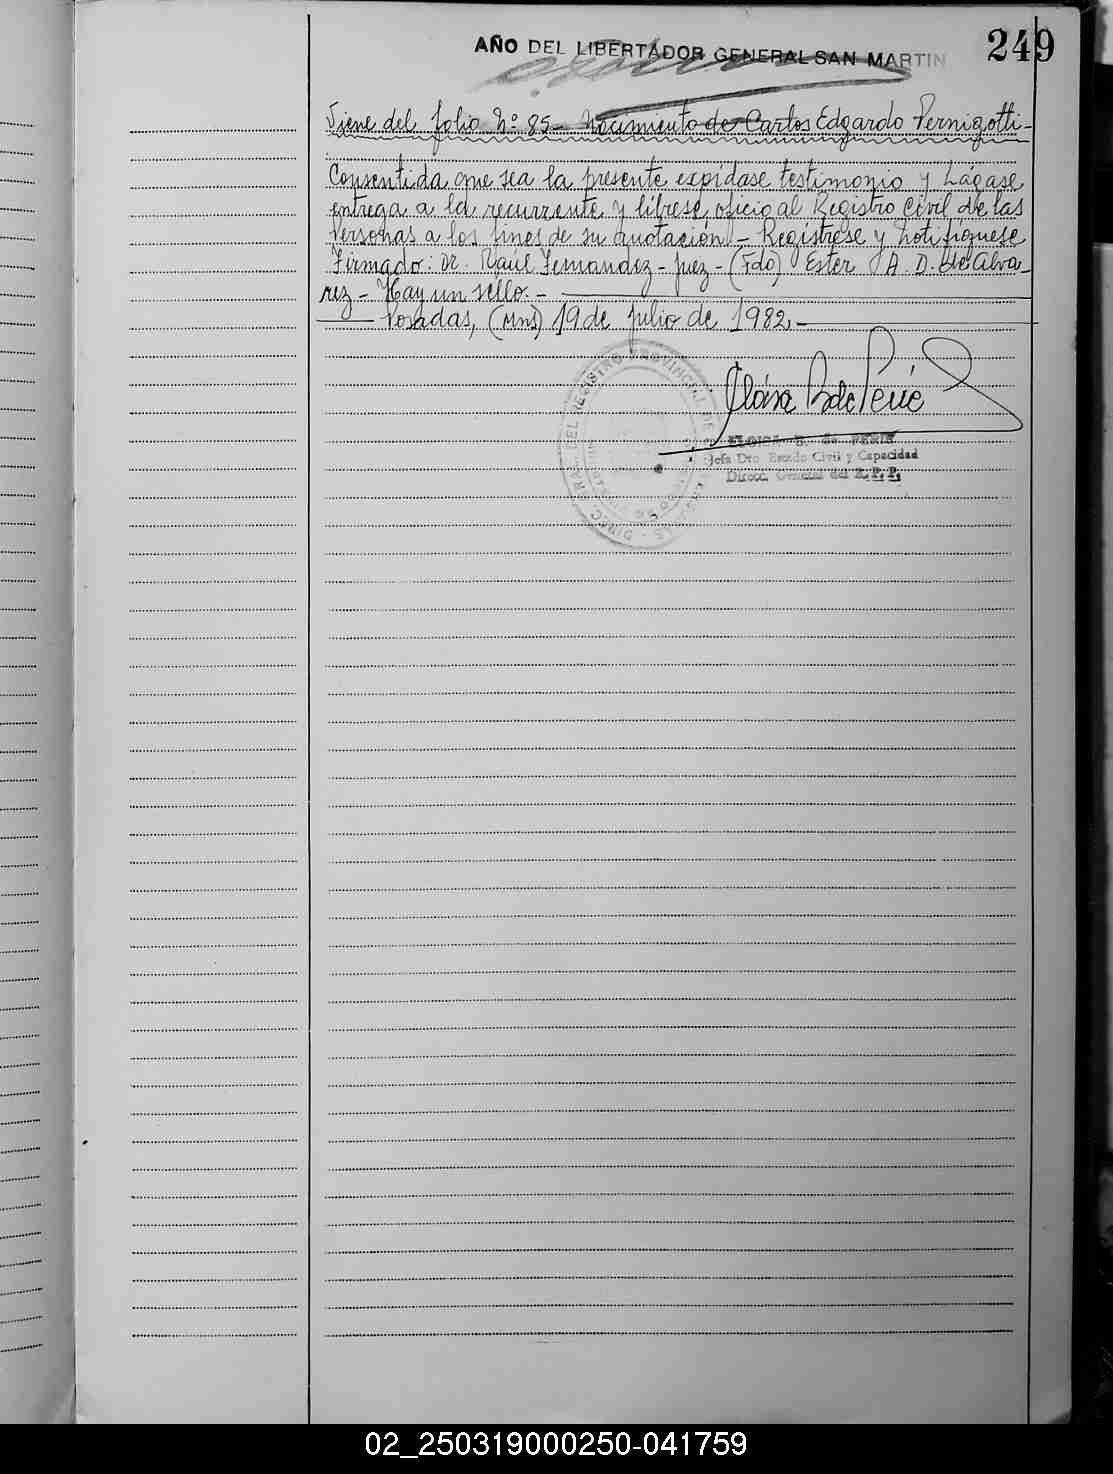 AÑO DEL LIBERTADOR GENERAL SAN MARTIN
249
Viene del folio Nº 85 - Nacimiento de Carlos Edgardo Pernigotti -
Consentida que sea la presente expídase testimonio y hágase
entrega a la recurrente y líbrese oficio al Registro Civil de las
Personas a los fines de su anotación - Regístrese y notifíquese
Firmado: Dr. Raul Fernandez - Juez - (Fdo) Ester A. D. de Alva-
rez - Hay un sello. -
Posadas, (Mns) 19 de julio de 1982. -
ELOISA B. de PERIE
Jefa Dto. Estado Civil y Capacidad
Direcc. General del R. P. P.
DIREC. GRAL. DEL REGISTRO PROVINCIAL DE LAS
02_250319000250-041759